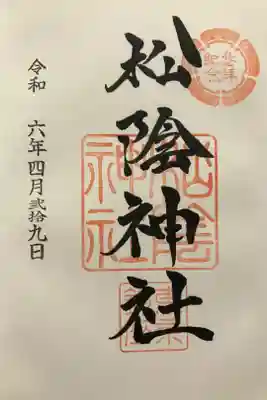 松陰神社
令和 六年四月弐拾九日
松陰
神社